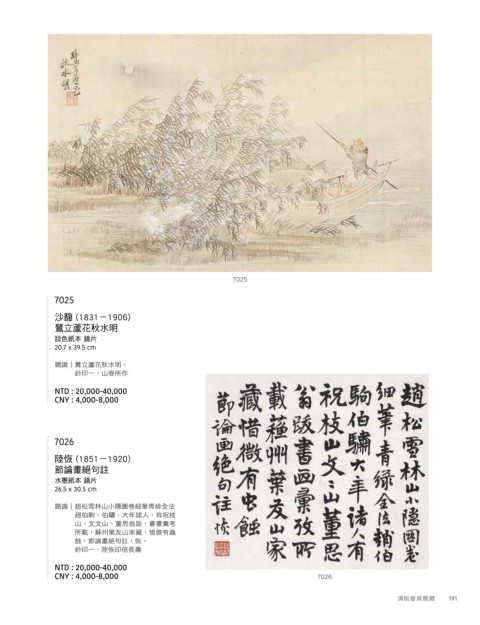 秋水明
7025
7025
沙馥 (1831－1906)
鷺立蘆花秋水明
設色紙本 鏡片
20.7 x 39.5 cm
題識｜鷺立蘆花秋水明。
鈐印一，山春所作
NTD : 20,000-40,000
CNY : 4,000-8,000
7026
陸恢 (1851－1920)
節論畫絕句註
水墨紙本 鏡片
26.5 x 30.5 cm
題識｜趙松雪林山小隱圖卷細筆青綠全法
趙伯駒、伯驌、大年諸人，有祝枝
山、文文山、董思翁跋，書畫彙考
所載，蘇州葉友山家藏，惜微有蟲
蝕。節論畫絕句註，恢。
鈐印一，陸恢印信長壽
NTD : 20,000-40,000
CNY : 4,000-8,000
趙松雪林山小隱圖卷
細筆青綠全法趙伯
駒伯驌大年諸人有
祝枝山文文山董思
翁跋書畫彙攷所
載蘇州葉友山家
藏惜微有虫蝕
節論画絕句註 恢
7026
191